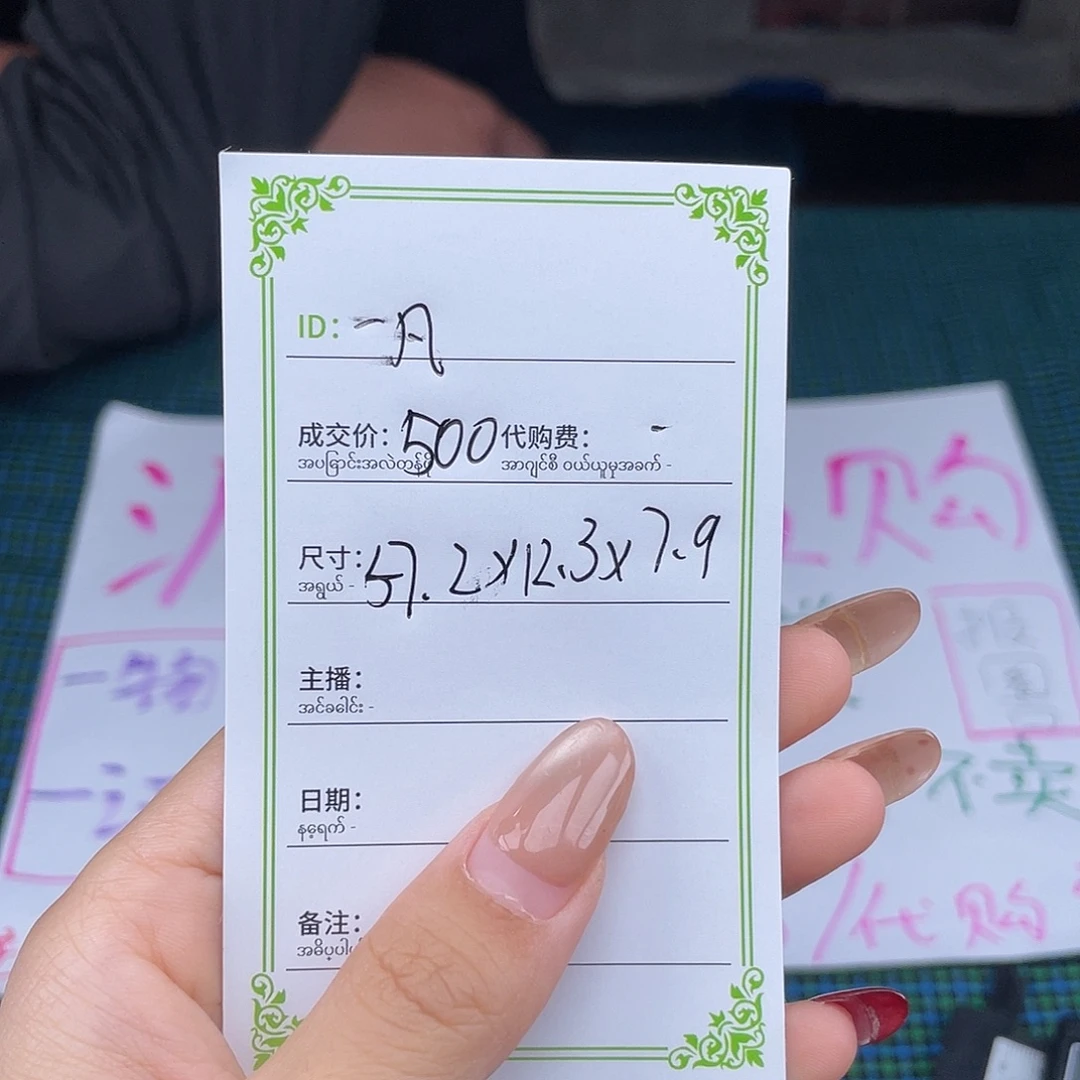 ID: 一凡
成交价: 500 代购费: -
အပြောင်းအလဲတန်ဖိုး အေဂျင်စီ ဝယ်ယူမှုအခက် -
尺寸: 57.2x12.3x7.9
အရွယ် -
主播:
အင်ခေါင်း -
日期:
နေ့ရက် -
备注:
购
一物
不卖
/代购